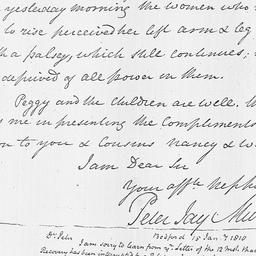 yesterday morning the women who
to rise perceived her left arm & leg
th a palsey, which still continues;
deprived of all power in them.
Peggy and the children are well.
me in presenting the Compliments
on to you & Cousins Nancy &
I am Dear Sir
Your affte. neph
Peter Jay Mu
Dr. Peter Bedford 18 Jan.y 1810
I am sorry to learn from yr. Letter of the 12 Inst. tha
Recovery has been interrupted